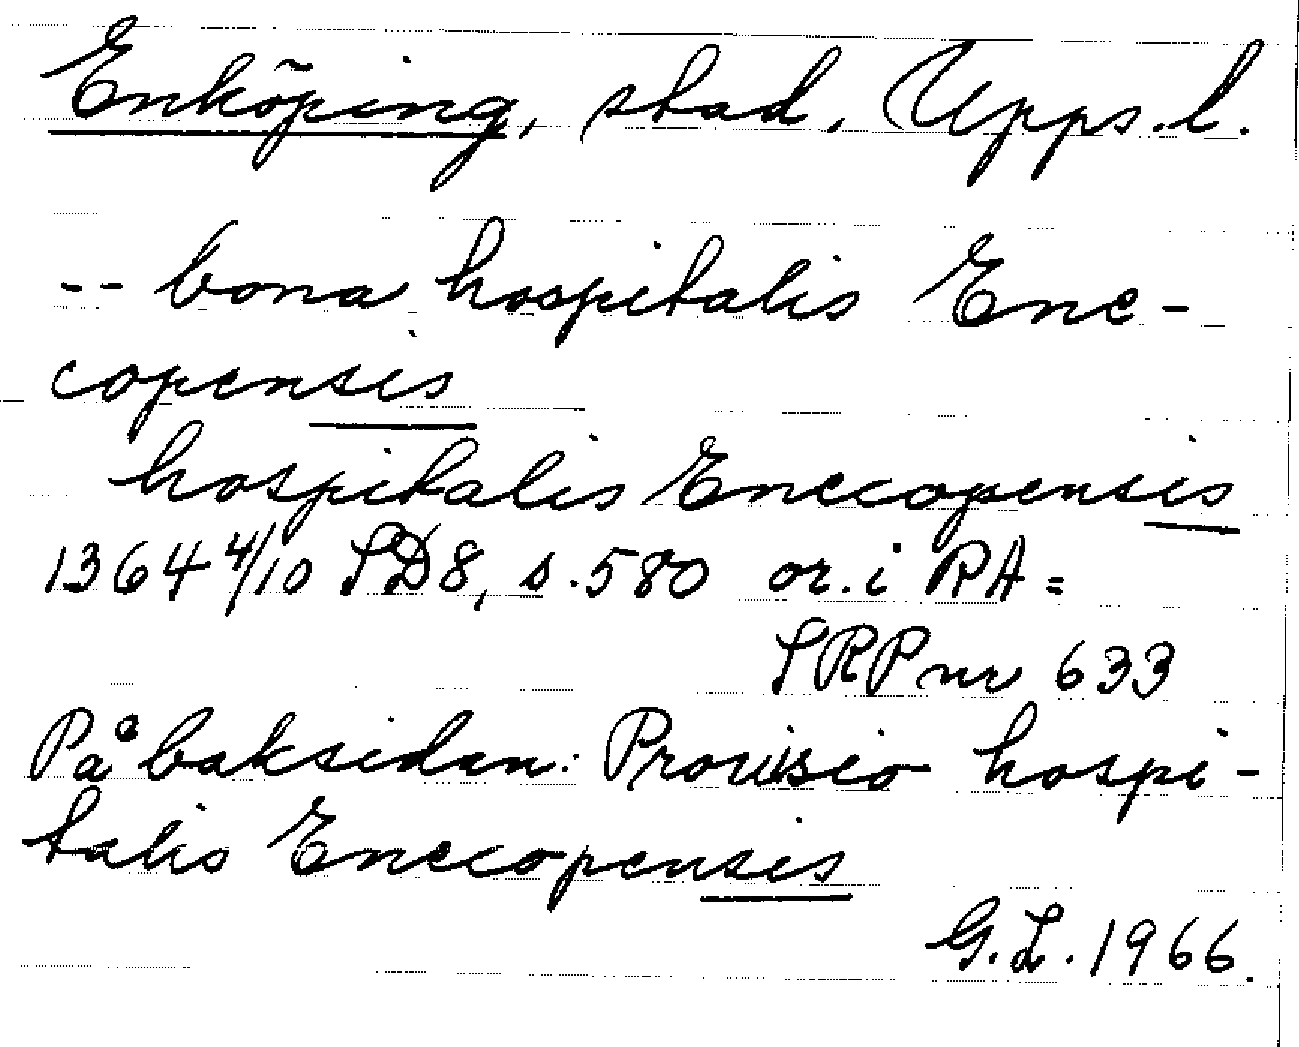 Enköping, stad, Upps. l.
-- bona hospitalis Enc-
copensis
hospitalis Eneccopensis
1364 4/10 SD8, s. 580 or. i RA =
SRP nr 633
På baksidan: Prouisio hospi-
talis Eneccopensis
G.L. 1966.